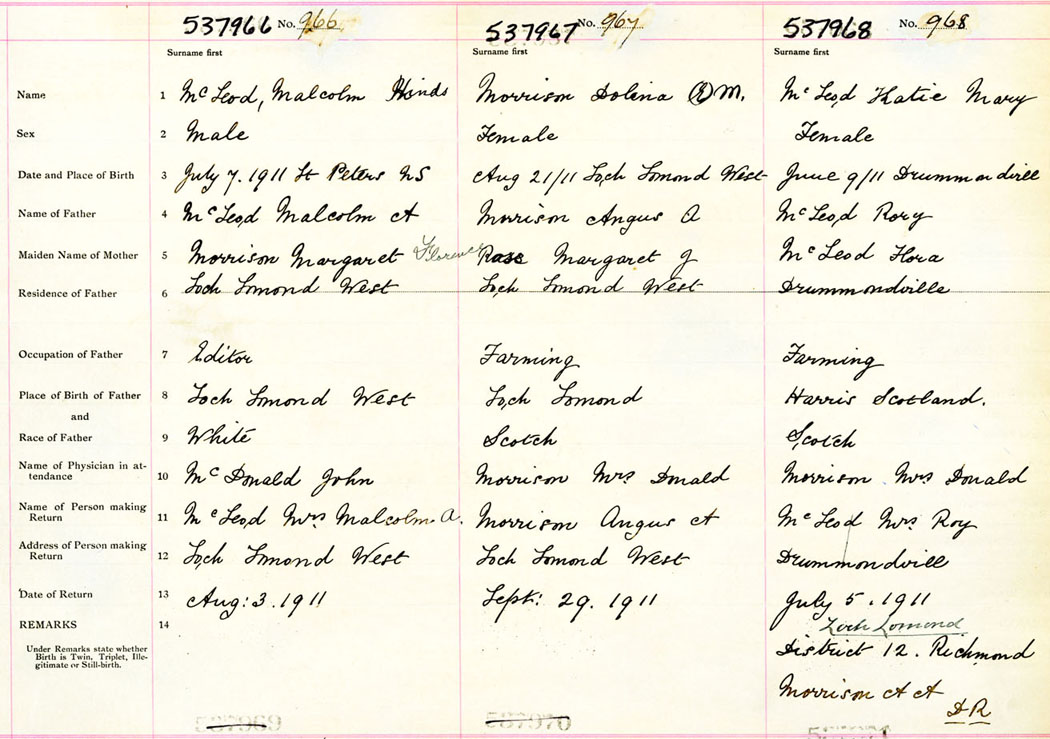 537966 No. 966 537967 No. 967 537968 No. 968
Surname first Surname first Surname first
Name 1 McLeod, Malcolm Hinds Morrison Dolina (R) M. McLeod Katie Mary
Sex 2 Male Female Female
Date and Place of Birth 3 July 7. 1911 St Peters NS Aug 21/11 Loch Lomond West June 9/11 Drummondvill
Name of Father 4 McLeod Malcolm A Morrison Angus A McLeod Rory
Maiden Name of Mother 5 Morrison Margaret Florence Ross Margaret J McLeod Flora
Residence of Father 6 Loch Lomond West Loch Lomond West Drummondville
Occupation of Father 7 Editor Farming Farming
Place of Birth of Father 8 Loch Lomond West Loch Lomond Harris Scotland.
and
Race of Father 9 White Scotch Scotch
Name of Physician in at-
tendance 10 McDonald John Morrison Mrs Donald Morrison Mrs Donald
Name of Person making
Return 11 McLeod Mrs Malcolm A. Morrison Angus A McLeod Mrs Roy
Address of Person making
Return 12 Loch Lomond West Loch Lomond West Drummondvill
Date of Return 13 Aug: 3. 1911 Sept: 29. 1911 July 5. 1911
REMARKS 14 Loch Lomond
Under Remarks state whether
Birth is Twin, Triplet, Ille-
gitimate or Still-birth.
District 12. Richmond
Morrison A A
D R